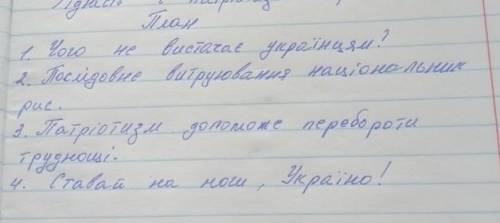 План
1. Чого не вистачає українцям?
2. Послідовне витруювання національних
рис.
3. Патріотизм допоможе перебороти
труднощі.
4. Ставай на ноги, Україно!